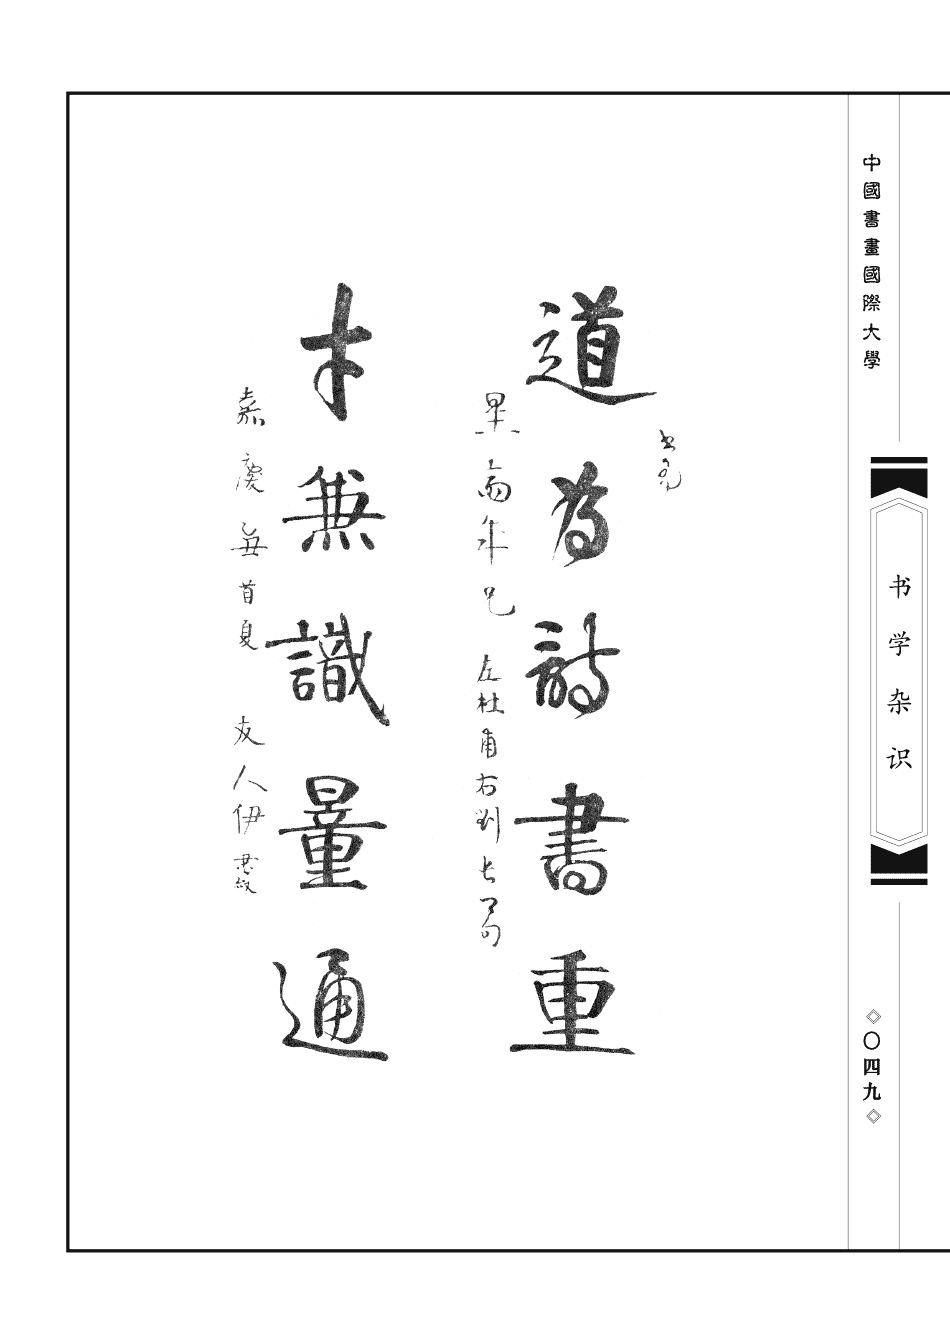 中國書畫國際大學
书学杂识
〇四九
道為詩書重
才兼識量通
年兄 左杜甫右劉長
嘉慶 首夏 友人伊